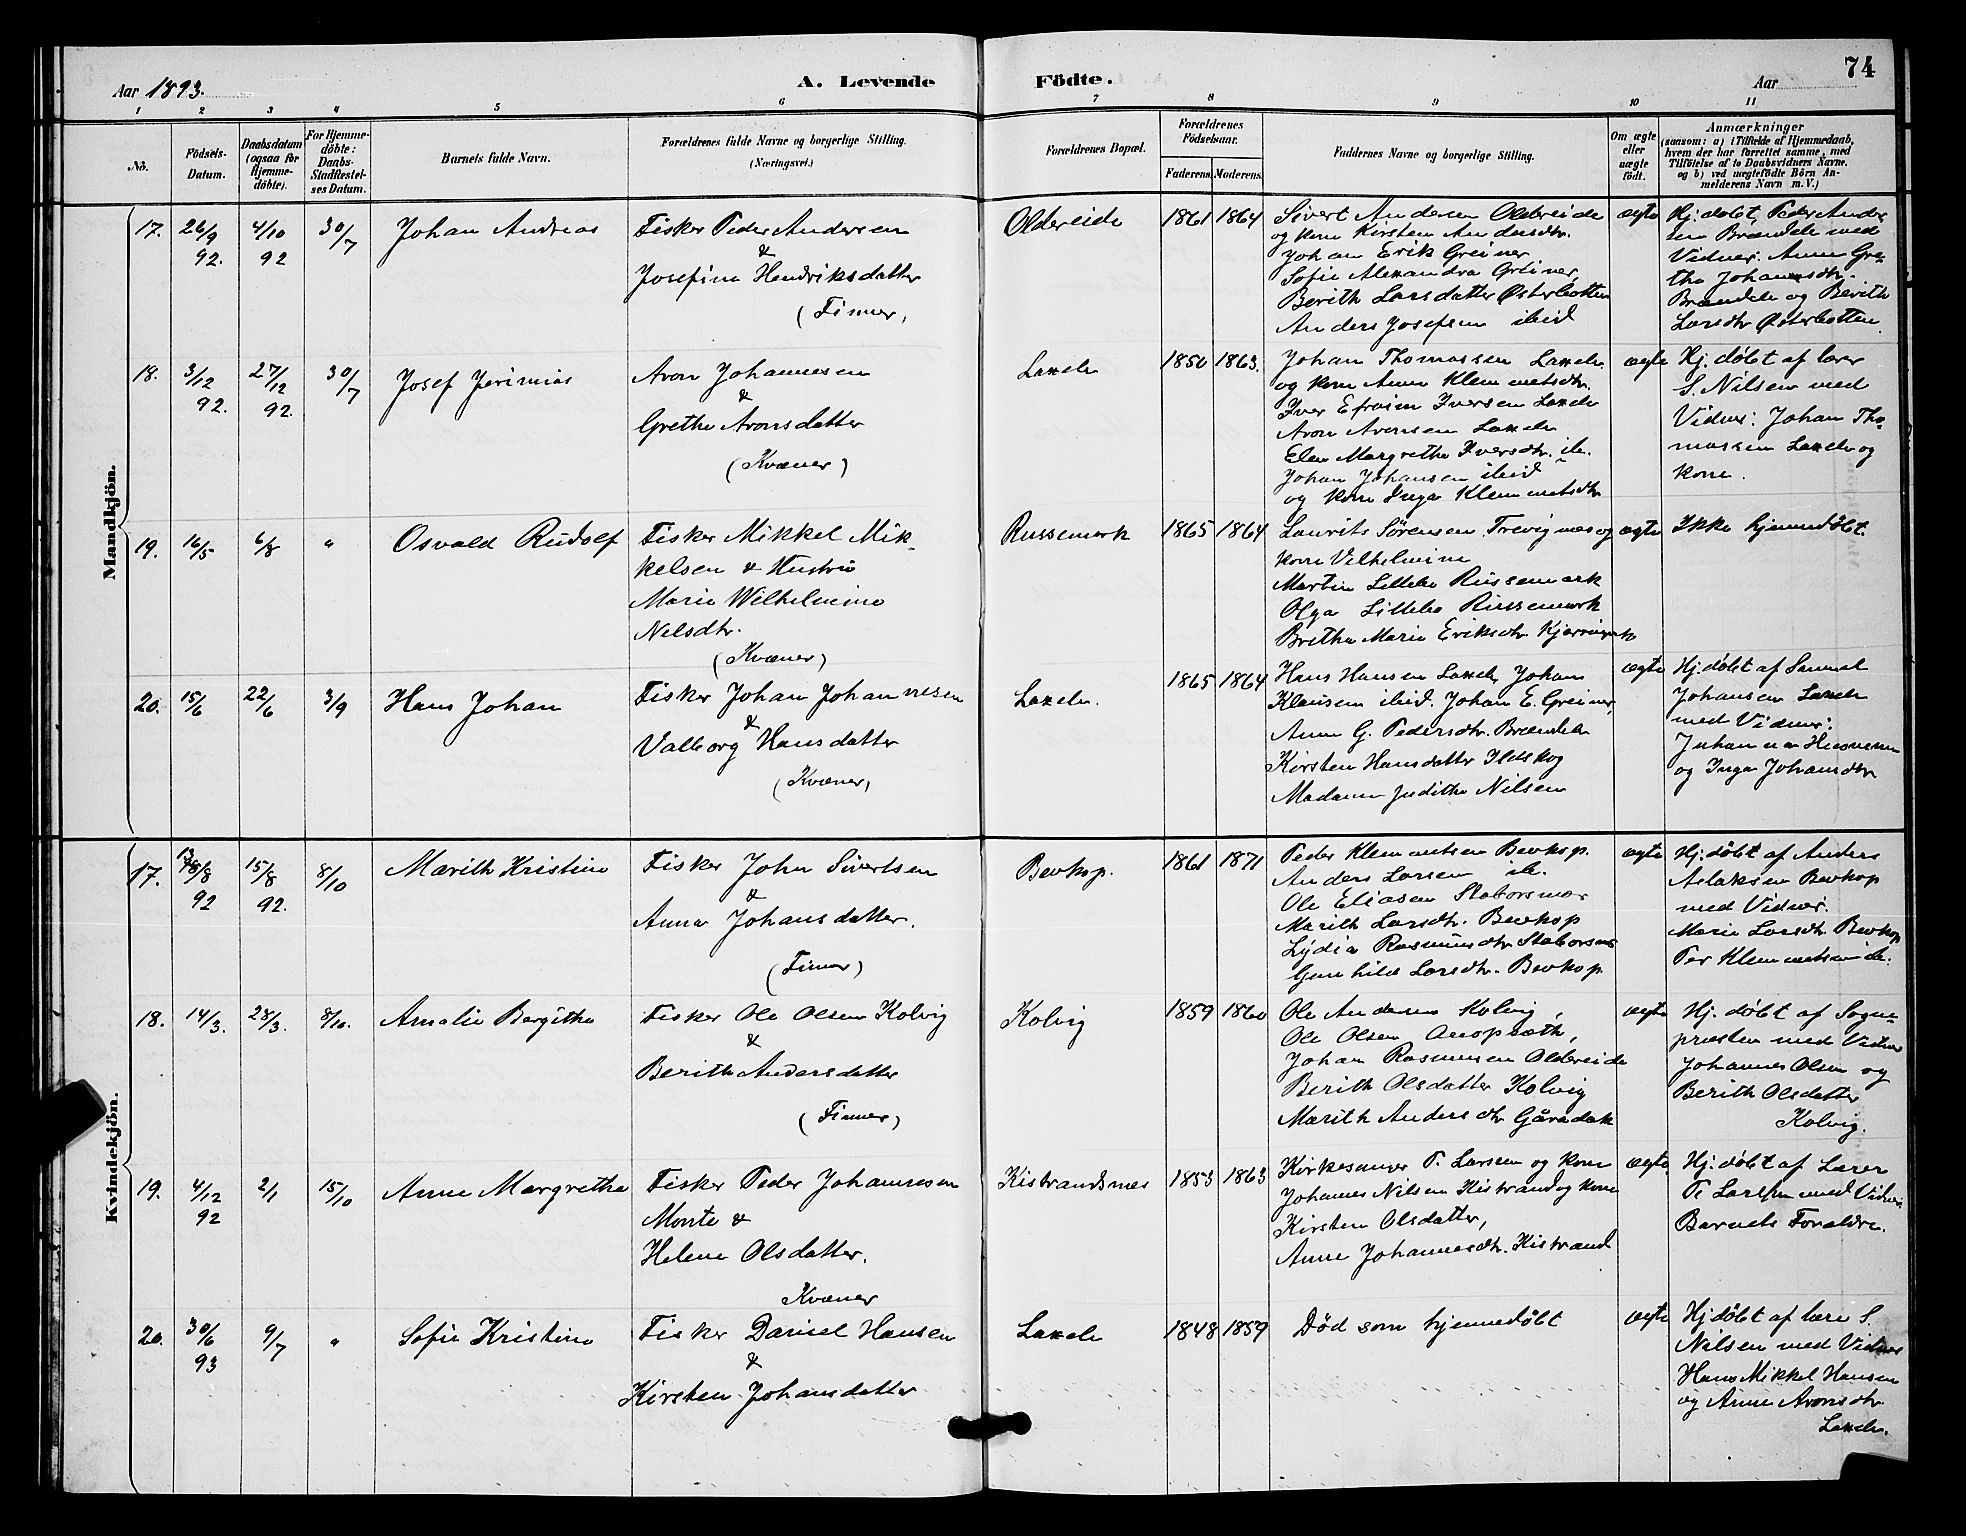 Aar 1893.
A. Levende Födte.
Aar
74
1 2 3 4 5 6 7 8 9 10 11
No.
Födsels-Datum.
Daabsdatum (ogsaa for Hjemme-döbte).
For Hjemme-döbte: Daabs-Stadfæstel-ses Datum.
Barnets fulde Navn.
Forældrenes fulde Navne og borgerlige Stilling. (Næringsvei.)
Forældrenes Bopæl.
Forældrenes Födselsaar.
Faderens. Moderens.
Faddernes Navne og borgerlige Stilling.
Om ægte eller uægte födt.
Anmærkninger
(saasom: a) i Tilfælde af Hjemmedaab, hvem der har forrettet samme, med Tilföielse af to Daabsvidners Navne. og b) ved uægtefödte Börn An-melderens Navn m. V.)
Mandkjön.
17. 26/9 92. 4/10 92 30/7
Johan Andreas
Fisker Peder Andersen
&
Josefine Hendriksdatter
(Finner)
Oldereide 1861 1864
Sivert Andersen Oldereide
og kone Kirsten Andersdtr.
Johan Erik Greiner
Sofie Alexandra Greiner
Berith Larsdatter Østerbotten
Anders Josefsen ibid
ægte
Hj. døbt, Peder Ander
sen Brændelv med
Vidner. Anne Gre-
the Johansdtr.
Brændelv og Berith
Larsdtr Østerbotten
18. 3/12 92. 27/12 92. 30/7
Josef Jerimias
Aron Johannesen
&
Grethe Aronsdatter
(Kvæner)
Laxelv 1850 1863.
Johan Thomassen Laxelv
og kone Anne Klemmetsdtr.
Iver Efraim Iversen Laxelv
Aron Aronsen Laxelv
Elen Margrethe Iversdtr. ib.
Johan Johansen ibid
og kone Inga Klemmetsdtr
ægte
Hj. døbt af lærer
S. Nilsen med
Vidner: Johan Tho-
massen Laxelv og
kone.
19. 16/5 6/8 "
Osvald Rudolf
Fisker Mikkel Mik-
kelsen & Hustru
Marie Wilhelmine
Nelsdtr.
(Kvæner)
Russemark 1865 1864
Laurits Sørensen Trevignes og
kone Vilhelmine
Martin Lillebo Russemark
Olga Lillebo Russemark
Brethe Marie Eriksdtr
ægte
Ikke hjemmedøbt.
20. 15/6 22/6 3/9
Hans Johan
Fisker Johan Johannesen
&
Valborg Hansdatter
(Kvæner)
Laxelv. 1865 1864
Hans Hansen Laxelv, Johan
Klausen ibid. Johan E. Greiner,
Anne G. Pedersdtr. Brændelv
Kirsten Hansdatter Ildskog
Madame Judithe Nilsen
ægte
Hj. døbt af Samuel
Johansen Laxelv
med Vidner:
og Inga Johansdtr
Kvindekjön.
17. 13/8 92 15/8 92. 8/10
Marith Kristine
Fisker John Sivertsen
&
Anna Johansdatter.
(Finner)
Bevkop. 1861 1871
Peder Klemmetsen Bevkop.
Anders Larsen ib.
Ole Eliasen Stabursnes
Marith Larsdtr. Bevkop
Lydia Rasmusdtr Stabursnes
Gunhild Larsdtr. Bevkop
ægte
Hj. døbt af Anders
Aslaksen Bevkop
med Vidner.
Marie Larsdtr. Bevkop
Per Klemmetsen ib.
18. 14/3. 28/3. 8/10.
Amalie Bergithe
Fisker Ole Olsen Kolvig
&
Berith Andersdatter
(Finner)
Kolvig 1859 1860
Ole Andersen Kolvig,
Ole Olsen
Johan Rasmussen Oldereide
Berith Olsdatter Kolvig
Marith Andersdtr Gåradak
ægte
Hj. døbt af Sogne-
præsten med Vidner
Johannes Olsen og
Berith Olsdatter
Kolvig.
19. 4/12 92 2/1 15/10
Anne Margrethe
Fisker Peder Johannesen
Monte &
Helene Olsdatter.
Kvæner
Kistrandsnes 1853 1863
Kirkesanger P. Larsen og kone
Johannes Nilsen Kistrand og kone
Kirsten Olsdatter,
Anne Johannesdtr. Kistrand
ægte
Hj. døbt af Lærer
P. Larsen med Vidner
Barnets Forældre.
20. 30/6 93 9/7 "
Sofie Kristine
Fisker Daniel Hansen
&
Kirsten Johansdatter
Laxelv 1848 1859
Død som hjemmedøbt
ægte
Hj døbt af lære S.
Nilsen med Vidner
Hans Mikkel Hansen
og Anne Aronsdtr
Laxelv.